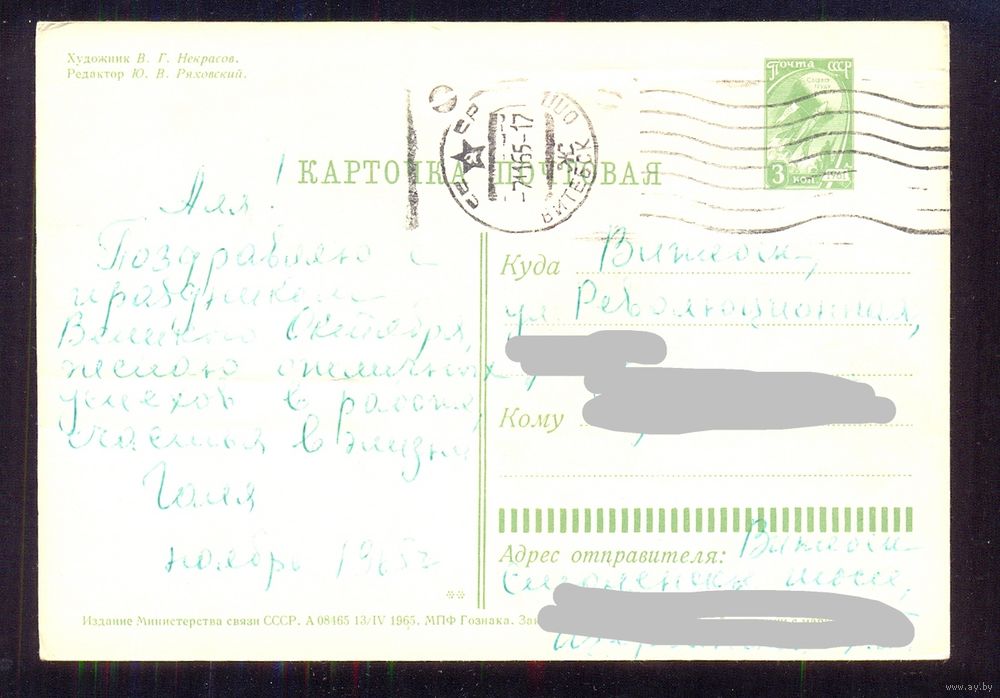 Художник В. Г. Некрасов.
Редактор Ю. В. Ряховский.
Почта СССР
3 коп. 1961
-7.11.65-17
ВИТЕБСК
КАРТОЧКА ПОЧТОВАЯ
Аля!
Поздравляю с
праздником
Великого Октября,
желаю отличных
успехов в работе,
счастья в жизни
Галя
ноябрь 1965 г
**
Куда Витебск,
ул. Революционная,
Кому
Адрес отправителя: Витебск
Смоленское шоссе,
Издание Министерства связи СССР. А 08465 13/IV 1965. МПФ Гознака. Зак
www.ay.by